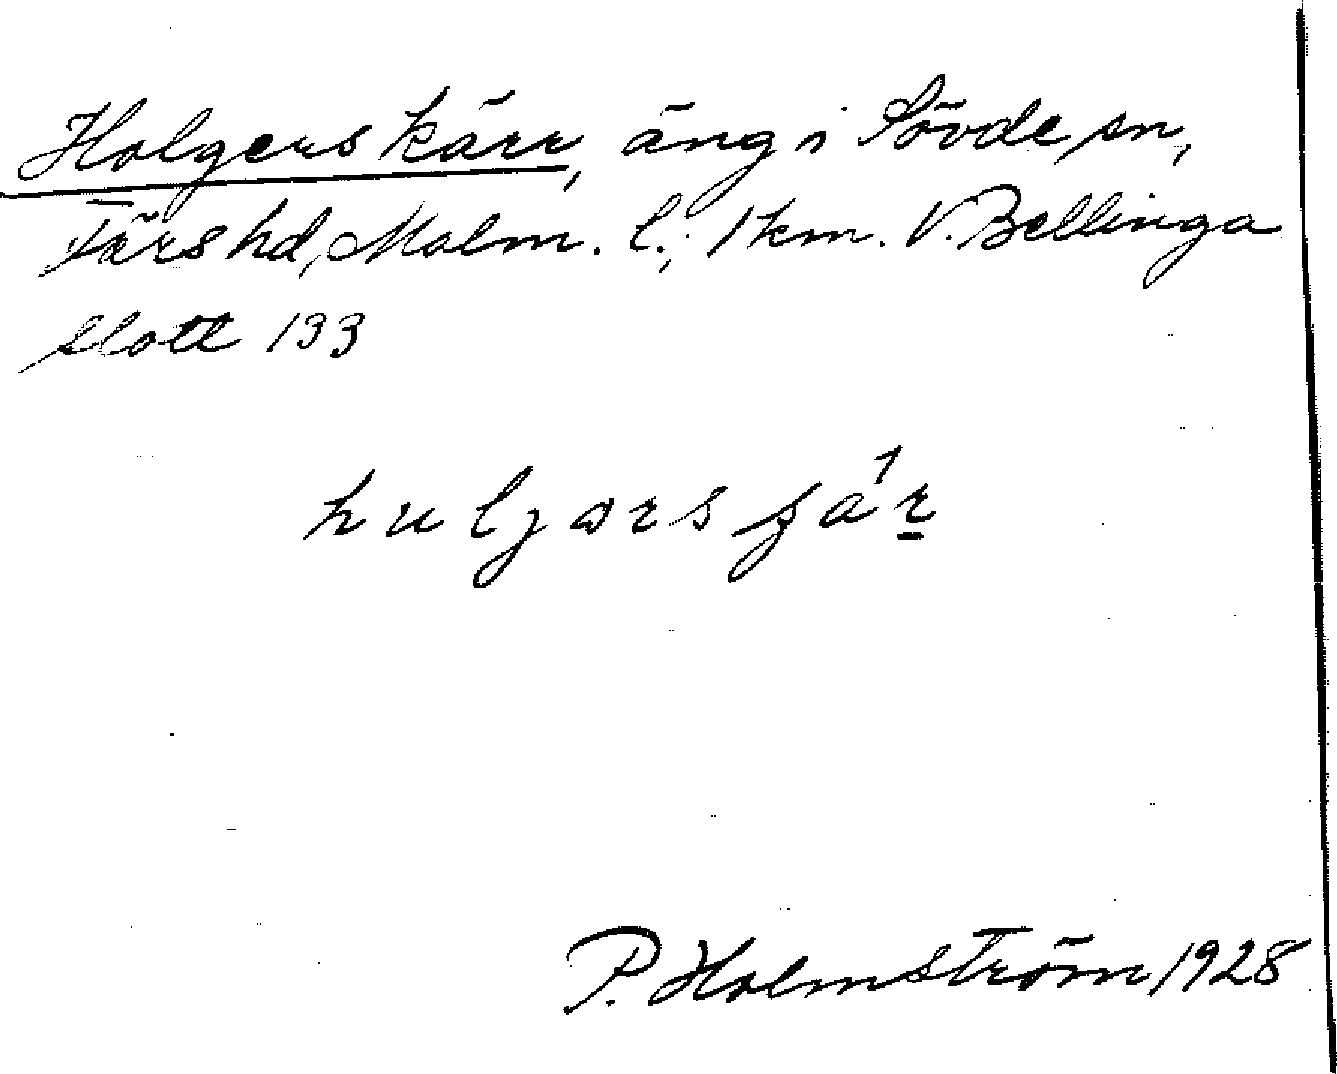 Holgers kärr, äng i Sövde sn,
Färs hd, Malm. l.; 1 km. V. Bellinga
slott 133
huljərs
P. Holmström 1928